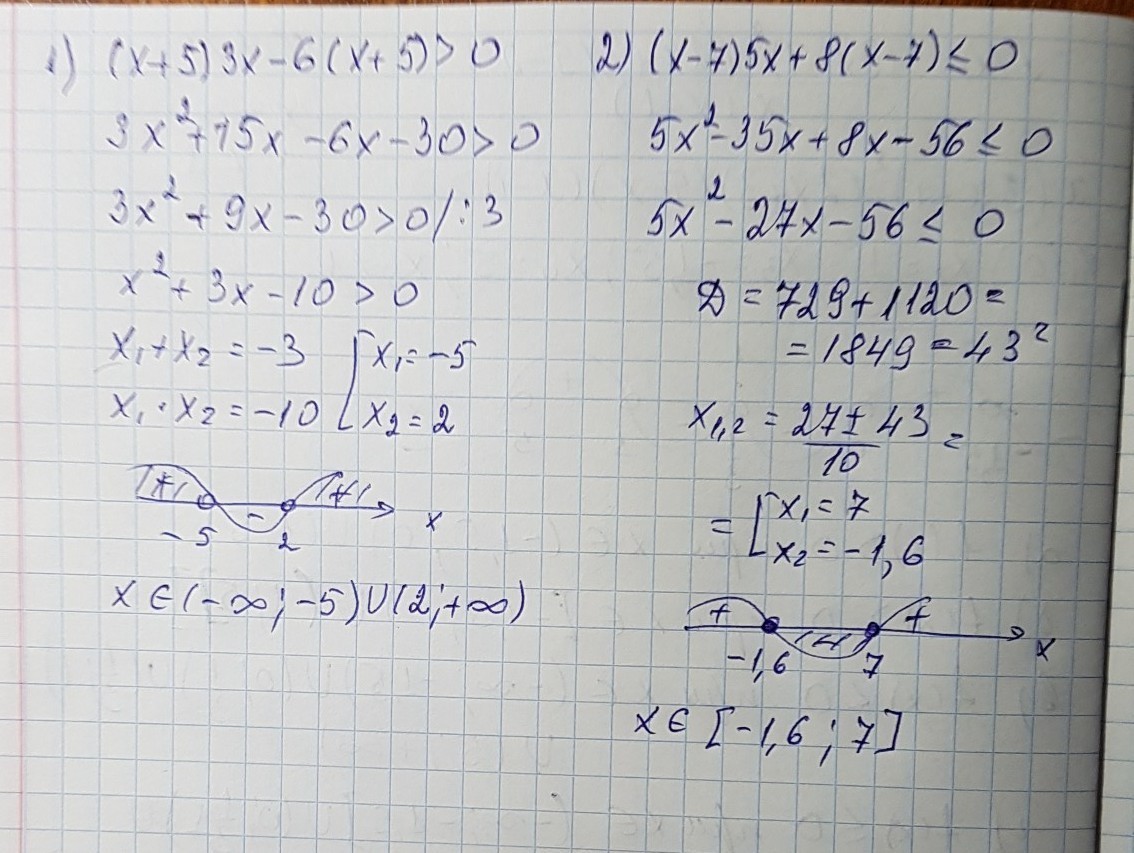 1) (x+5)3x-6(x+5)>0
3x²+15x-6x-30>0
3x²+9x-30>0/:3
x²+3x-10>0
x₁+x₂=-3 [x₁=-5
x₁·x₂=-10 [x₂=2
+ - + x
-5 2
x∈(-∞;-5)∪(2;+∞)
2) (x-7)5x+8(x-7)≤0
5x²-35x+8x-56≤0
5x²-27x-56≤0
D=729+1120=
=1849=43²
x₁,₂=27±43/10=
=[x₁=7
x₂=-1,6
+ - + x
-1,6 7
x∈[-1,6;7]